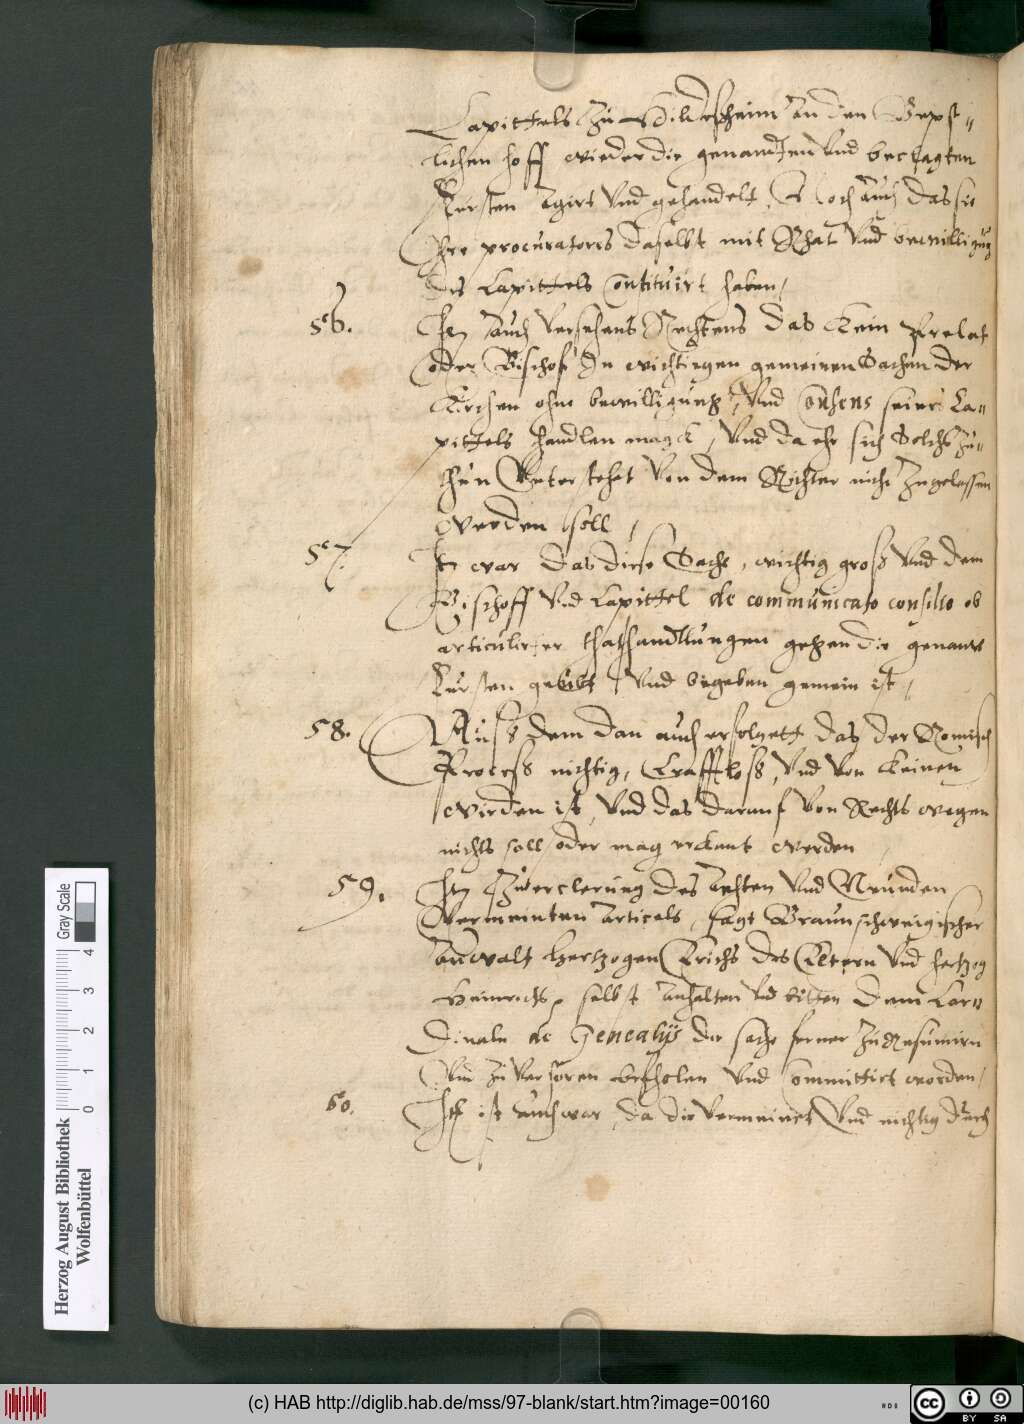 Capittels Zu Hildesheim An den Bepst=
lichen hoff wieder die genandten Vnd beclagten
Fürsten Agirt Vnd gehandelt, Noch auch das sie
Ihre procuratores daselbt mit Rhat Vnd bewilligug
des Capittels constituirt haben,
56. Itz Auch Versehens Rechtens das Kein Prelat
oder Bischof In wichtigen gemeinen Sachen der
Kirchen ohne bewilligung, Vnd consens seines Ca=
pittels handlen mag, Vnd da ehr sich Solchs Zu=
thun Vnterstehet Von dem Richter nicht Zugelassen
werden soll,
57. Itz war das diese Sache, wichtig groß Vnd dem
Bischoff Vnd Capittel de communicato consilio ob
articulirter thathandllungen gegen die genante
Fürsten geubt Vnd begeben gemein ist,
58. Auß dem dan auch erfolgett das der Romisch
Process nichtig, Crafftloß, Vnd von Keinen
wirden ist, Vnd das darauf Von Rechts wegen
nichts soll oder mag erckant werden
59. Itz Zuerclerung des Achten Vnd Neunden
Vermeinten Articels, sagt Braunschweigischer
Anwalt Hertzogen Erichs des Eltern Vnd Hertzog
Heinrichs selbst Anhalten Vnd bitten dem Car=
dinaln de Senealys die sache ferner Zu Resumirn
Vnd zu Verhoren befholen Vnd Committirt worden,
60. Itz ist Auch war, da die Vermeinet Vnd nichtig durch
Herzog August Bibliothek
Wolfenbüttel
Gray Scale
0 1 2 3 4
(c) HAB http://diglib.hab.de/mss/97-blank/start.htm?image=00160
cc BY SA